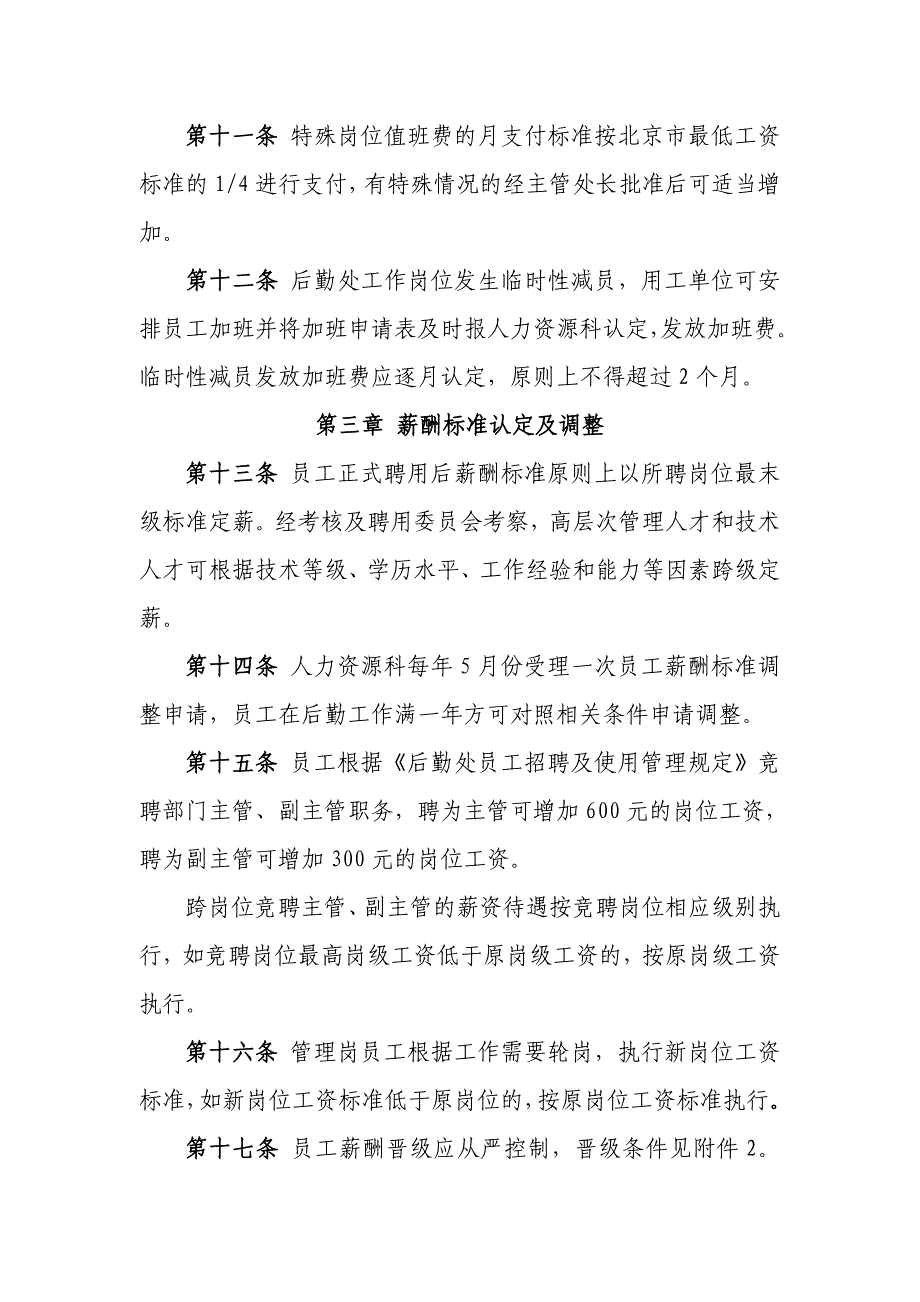 第十一条 特殊岗位值班费的月支付标准按北京市最低工资
标准的 1/4 进行支付，有特殊情况的经主管处长批准后可适当增
加。
第十二条 后勤处工作岗位发生临时性减员，用工单位可安
排员工加班并将加班申请表及时报人力资源科认定，发放加班费。
临时性减员发放加班费应逐月认定，原则上不得超过 2 个月。
第三章 薪酬标准认定及调整
第十三条 员工正式聘用后薪酬标准原则上以所聘岗位最末
级标准定薪。经考核及聘用委员会考察，高层次管理人才和技术
人才可根据技术等级、学历水平、工作经验和能力等因素跨级定
薪。
第十四条 人力资源科每年 5 月份受理一次员工薪酬标准调
整申请，员工在后勤工作满一年方可对照相关条件申请调整。
第十五条 员工根据《后勤处员工招聘及使用管理规定》竞
聘部门主管、副主管职务，聘为主管可增加 600 元的岗位工资，
聘为副主管可增加 300 元的岗位工资。
跨岗位竞聘主管、副主管的薪资待遇按竞聘岗位相应级别执
行，如竞聘岗位最高岗级工资低于原岗级工资的，按原岗级工资
执行。
第十六条 管理岗员工根据工作需要轮岗，执行新岗位工资
标准，如新岗位工资标准低于原岗位的，按原岗位工资标准执行。
第十七条 员工薪酬晋级应从严控制，晋级条件见附件 2。